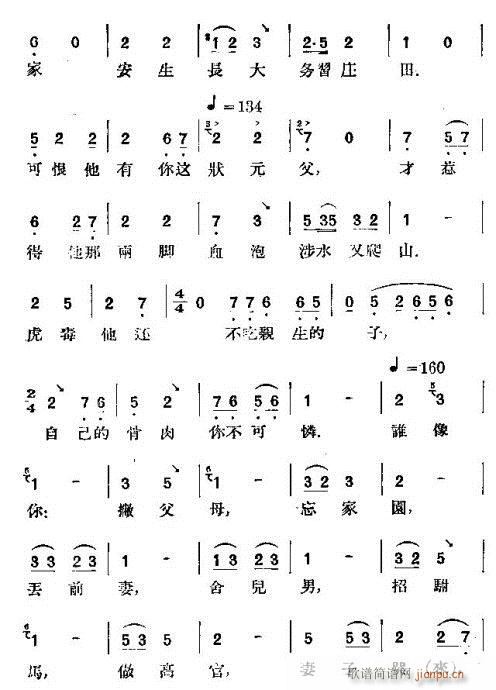 6 0 | 2 2 | 1 2 3 | 2·5 2 | 4 |
家 安生 長大 务習庄 田.
♩=134
5 2 2 | 2 6 7 | 2 2 | 7 0 | 7 5 7 |
可恨他 有你这 狀元 父, 才惹
6 2 7 | 2 2 | 7 3 | 5 35 3 2 | 1 |
得他那 兩脚 血泡 涉水又爬 山.
2 5 | 2 7 | 4/4 0 7 7 6 | 7 6 5 | 0 5 2 6 5 6 |
虎毒 他还 不吃親 生的 子,
♩=160
2/4 2 7 6 | 2 2 | 7 6 5 6 | 1 - | 2 3 |
自己的 骨肉 你不可 憐. 誰像
1 - | 3 5 | 1 - | 3 2 3 | 2 - |
你: 撇父 母, 忘家 園,
3 3 2 3 | 1 - | 3 3 2 3 | 1 - | 3 5 |
丟前 妻, 舍兒 男, 招駙
1 - | 5 5 3 | 2 - | 2 2 | 2 2 7 |
馬, 做高 官, 妻子
歌谱简谱网
jianpu.cn